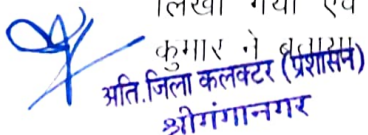 लिखा गया एवं
कुमार ने बताया
अति.जिला कलक्टर (प्रशासन)
श्रीगंगानगर